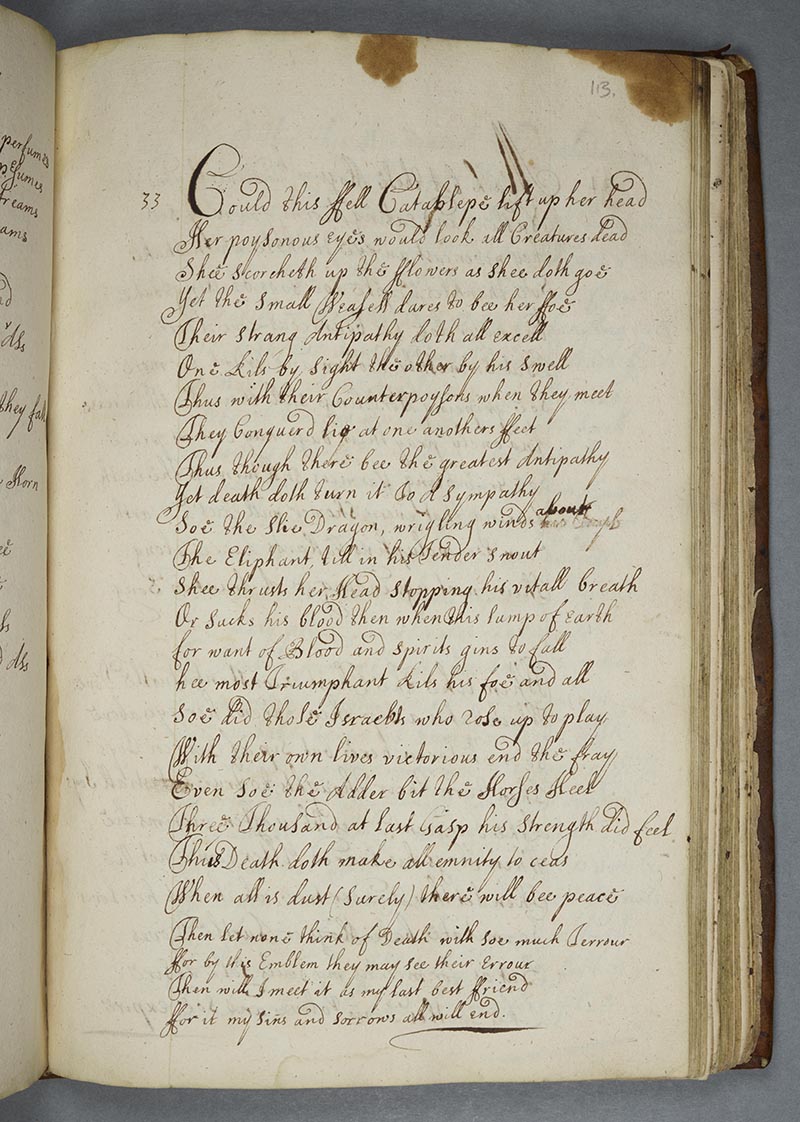 perfumes
sumes
reams
ams
they fall
Horn
113.
33 Could this ffell Catablepe lift up her head
Her poysonous eyes would look all Creatures dead
Shee scorcheth up the fflowers as shee doth goe
Yet the small Weasell dares to bee her ffoe
Their strang Antipathy doth all excell
One kils by sight the other by his smell
Thus with their Counterpoysons when they meet
They Conquerd lie at one anothers ffeet
Thus though there bee the greatest Antipathy
Yet death doth turn it to a sympathy
Soe the slie Dragon, wrigling winds about
The Eliphant, till in his Tender snout
Shee thrusts her Head stopping his vitall breath
Or sucks his blood then when this lump of earth
for want of Blood and spirits gins to fall
hee most Triumphant kils his foe and all
Soe did those Israelits who rose up to play
With their own lives victorious end the fray
Even soe the Adder bit the Horses Heel
Three Thousand at last Gasp his strength did feel
Thus Death doth make all emnity to ceas
When all is dust (surely) there will bee peace
Then let none think of Death with soe much Terrour
ffor by this Emblem they may see their Errour
Then will I meet it as my last best ffriend
ffor it my sins and sorrows all will end.